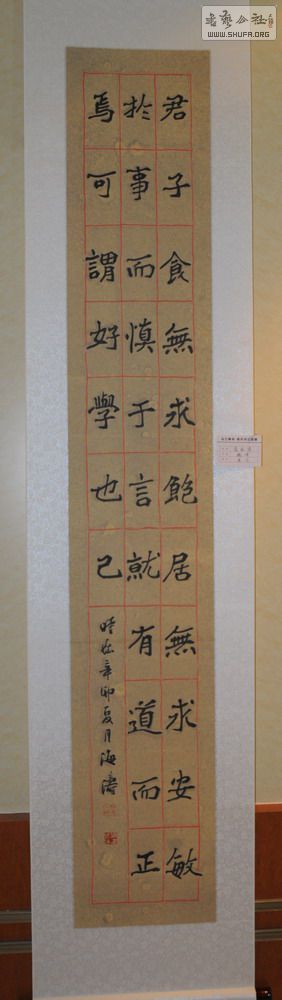 君子食無求飽居無求安敏
於事而慎于言就有道而正
焉可謂好學也已
時在辛卯夏月海濤
書藝公社
WWW.SHUFA.ORG